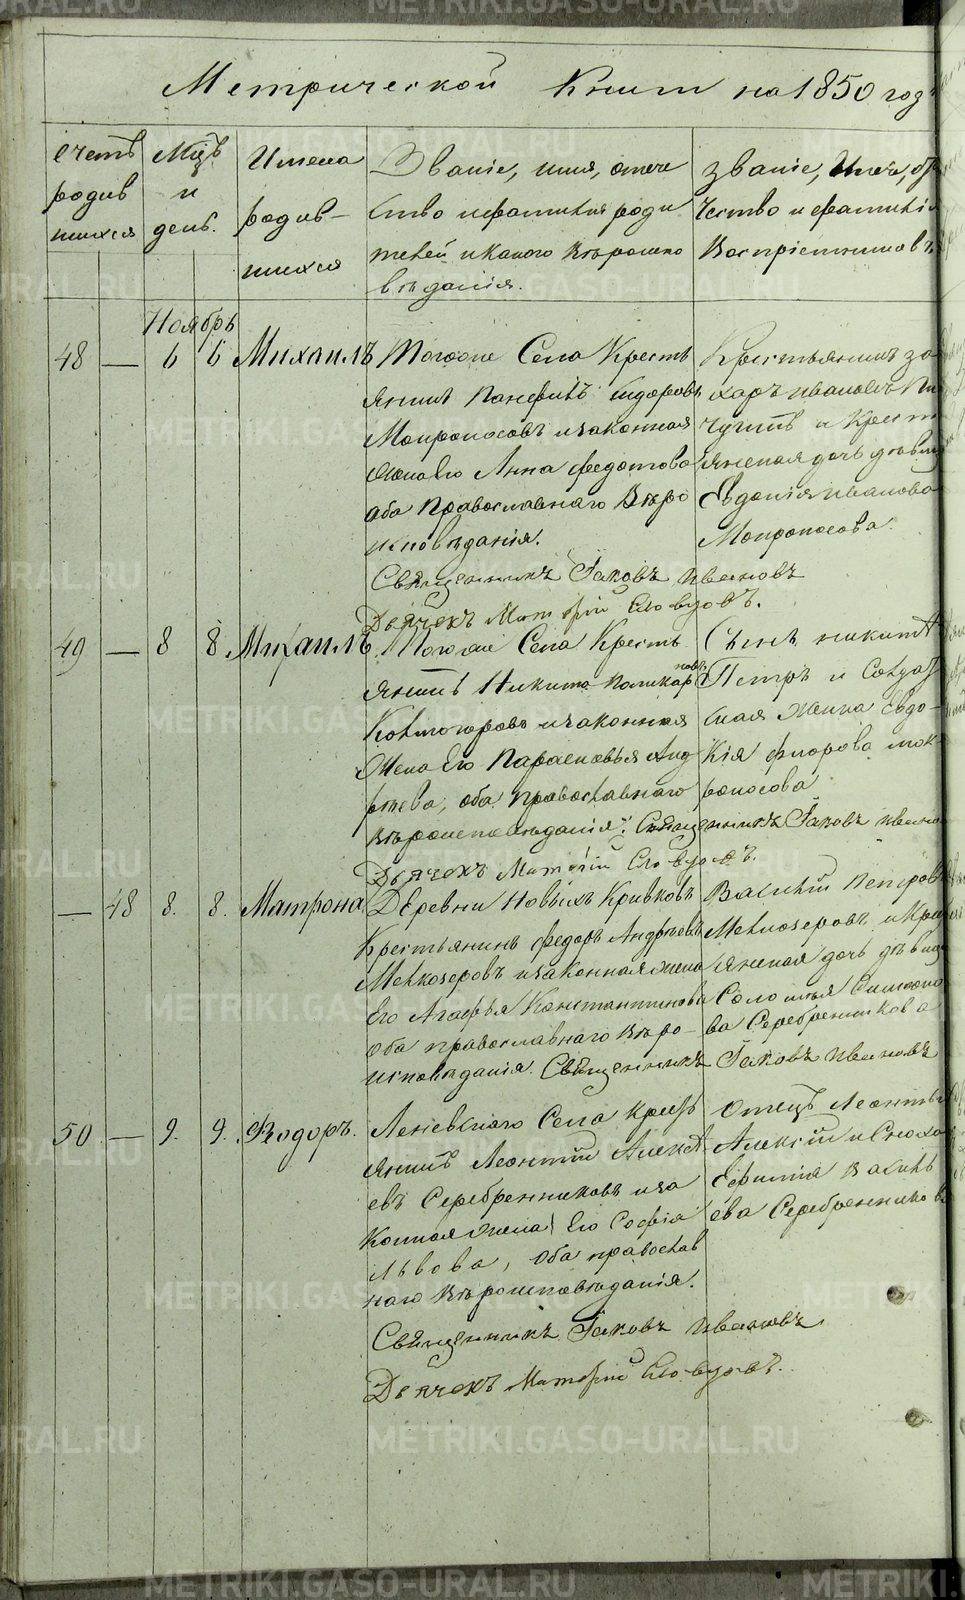 Метрической Книги на 1850 годъ
Счетъ родив шихся
Мцъ и день.
Имена родив- шихся
Званіе, имя, отече
ство и фамилія роди
телей и какого Вѣроиспо
вѣданія.
Званіе, Имя, От
чество и фамилія
Воспріемниковъ
Ноябрь
48 — 6 6 Михаилъ
Тогоже Села Кресть
янинъ Панфилъ Ѳедоровъ
Мокроносовъ и законная
жена Его Анна Федотова
оба Православнаго Вѣро
исповѣданія.
Священникъ Іаковъ Ивановъ
Дьячекъ
Крестьянинъ За
харъ Ивановъ
и Крест
янская дочь дѣвица
Евдокія Иванова
Мокроносова.
49 — 8 8 Михаилъ
Тогоже Села Кресть
янинъ Никита Поликарповъ
Колмогоровъ и законная
Жена Его Парасковья Анд
реева, оба православнаго
вѣроисповѣданія. Священникъ Іаковъ Ивановъ
Дьячекъ
Сынъ Никиты
Петръ и Солдат
ская Жена Евдо-
кія Флорова Мок-
роносова
— 48 8. 8. Матрона
Деревни Новыхъ Кривковъ
Крестьянинъ Федоръ Андреевъ
Мелкозеровъ и законная жена
Его Агафья Константинова
Оба православнаго Вѣро-
исповѣданія. Священникъ Іаковъ Ивановъ
Василій Петровъ
Мелкозеровъ и Крес
янская дочь дѣвица
Соломія Симоно
ва Серебренникова
50 — 9. 9. Ѳеодоръ.
Леневскаго Села Кресть
янинъ Леонтій Алексѣ
евъ Серебренниковъ и за
конная жена Его Софія
Львова, Оба православ
наго Вѣроисповѣданія.
Священникъ Іаковъ Ивановъ
Дьячекъ
Отецъ Леонтья
Алексій и Сноха
Ефимія Василь
ева Серебренникова
METRIKI.GASO-URAL.RU